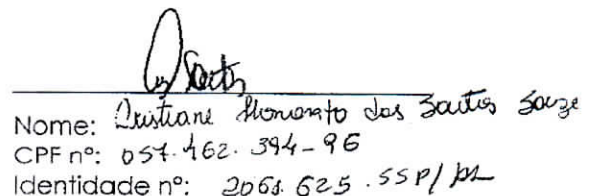 Santos
Nome: Cristiane Honorato dos Santos Souze
CPF nº: 057.462.394-96
Identidade nº: 2061.625.SSP/